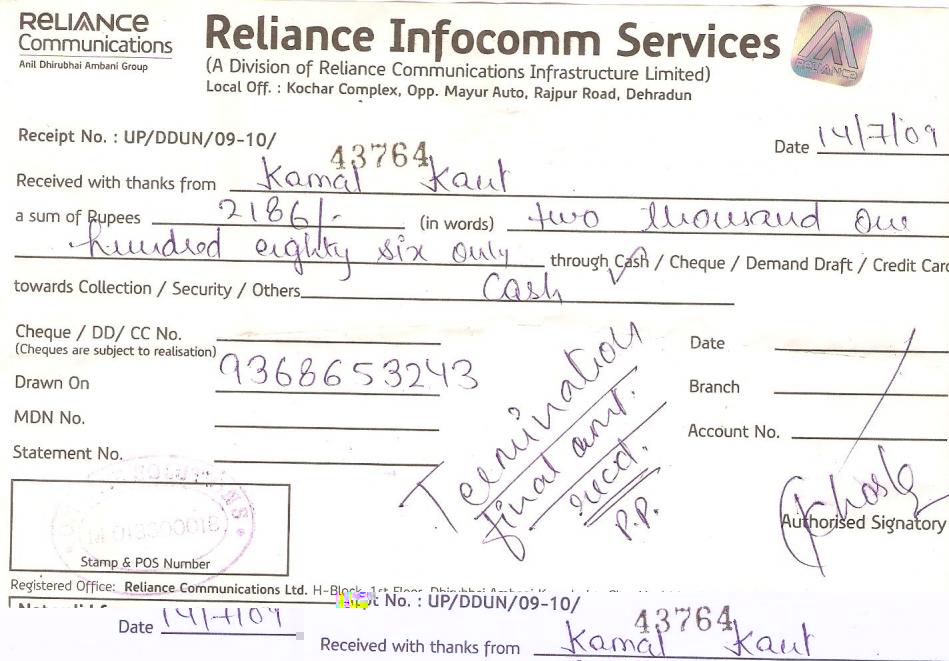 RELIANCE
Communications
Anil Dhirubhai Ambani Group
Reliance Infocomm Services
(A Division of Reliance Communications Infrastructure Limited)
Local Off. : Kochar Complex, Opp. Mayur Auto, Rajpur Road, Dehradun
RELIANCE
Receipt No. : UP/DDUN/09-10/ 43764
Date 14/7/09
Received with thanks from Kamal Kaut
a sum of Rupees 2186/- (in words) two thousand one
hundred eighty six only through Cash / Cheque / Demand Draft / Credit Card
towards Collection / Security / Others Cash
Cheque / DD/ CC No.
(Cheques are subject to realisation)
Drawn On 9368653243
MDN No.
Statement No.
Termination
final amt.
recd.
P.P.
Date
Branch
Account No.
Authorised Signatory
Stamp & POS Number
Registered Office: Reliance Communications Ltd. H-Block, 1st Floor,
No. : UP/DDUN/09-10/ 43764
Date 14/7/09
Received with thanks from Kamal Kaut